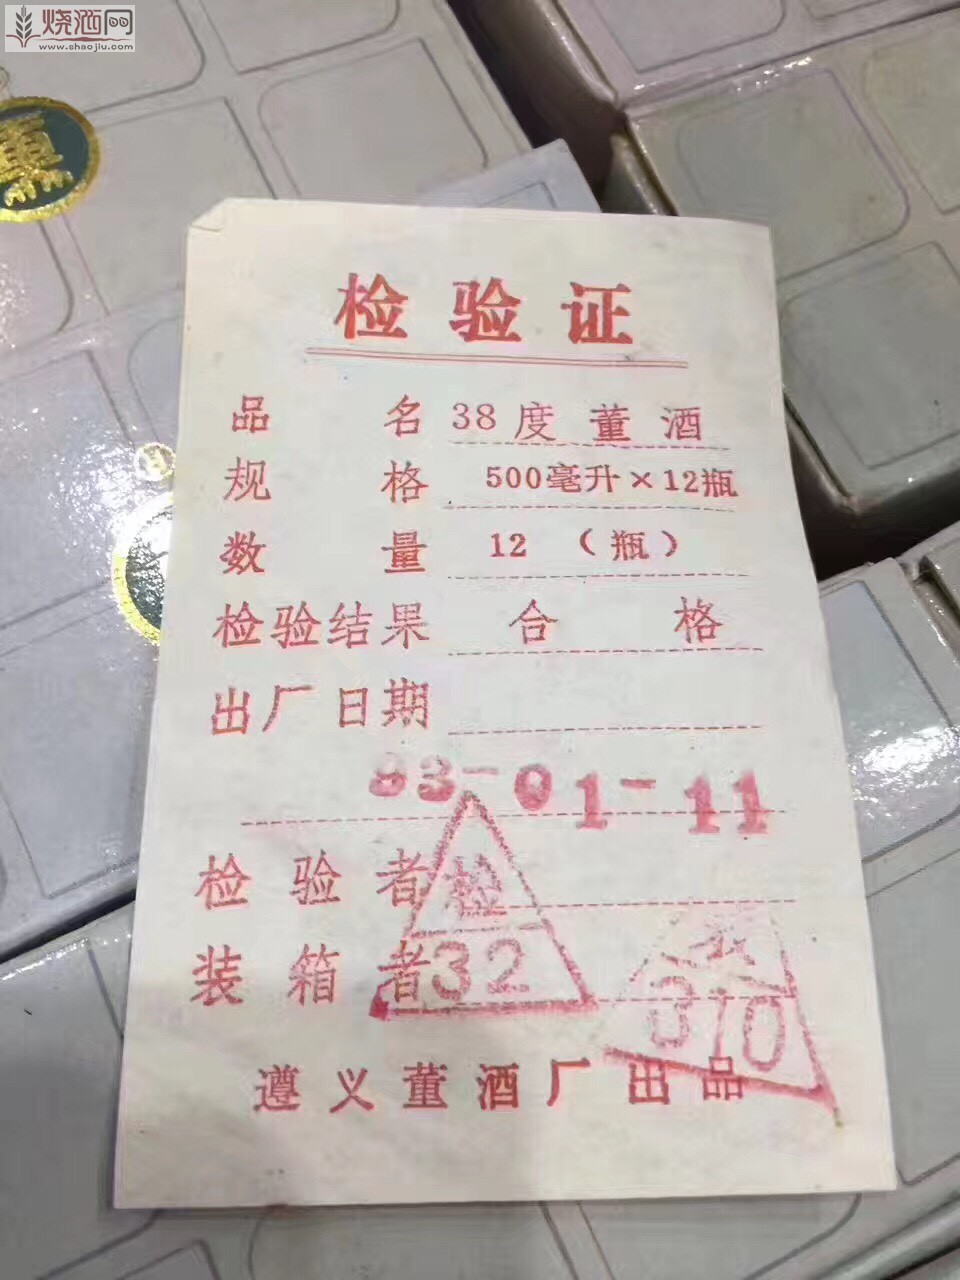 烧酒网
www.shaojiu.com
董
检验证
品名 38度董酒
规格 500毫升×12瓶
数量 12（瓶）
检验结果 合格
出厂日期
93-01-11
检验者
检
32
装箱者
310
遵义董酒厂出品